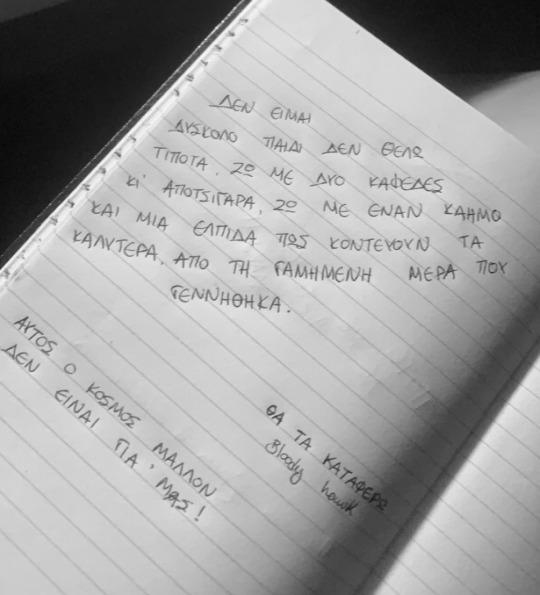 ΔΕΝ ΕΙΜΑΙ
ΔΥΣΚΟΛΟ ΠΑΙΔΙ ΔΕΝ ΘΕΛΩ
ΤΙΠΟΤΑ. ΖΩ ΜΕ ΔΥΟ ΚΑΦΕΔΕΣ
ΚΙ' ΑΠΟΤΣΙΓΑΡΑ, ΖΩ ΜΕ ΕΝΑΝ ΚΑΗΜΟ
ΚΑΙ ΜΙΑ ΕΛΠΙΔΑ ΠΩΣ ΚΟΝΤΕΥΟΥΝ ΤΑ
ΚΑΛΥΤΕΡΑ. ΑΠΟ ΤΗ ΓΑΜΗΜΕΝΗ ΜΕΡΑ ΠΟΥ
ΓΕΝΝΗΘΗΚΑ.
ΑΥΤΟΣ Ο ΚΟΣΜΟΣ ΜΑΛΛΟΝ
ΔΕΝ ΕΙΝΑΙ ΓΙΑ' ΜΑΣ!
ΘΑ ΤΑ ΚΑΤΑΦΕΡΩ
Bloody hawk